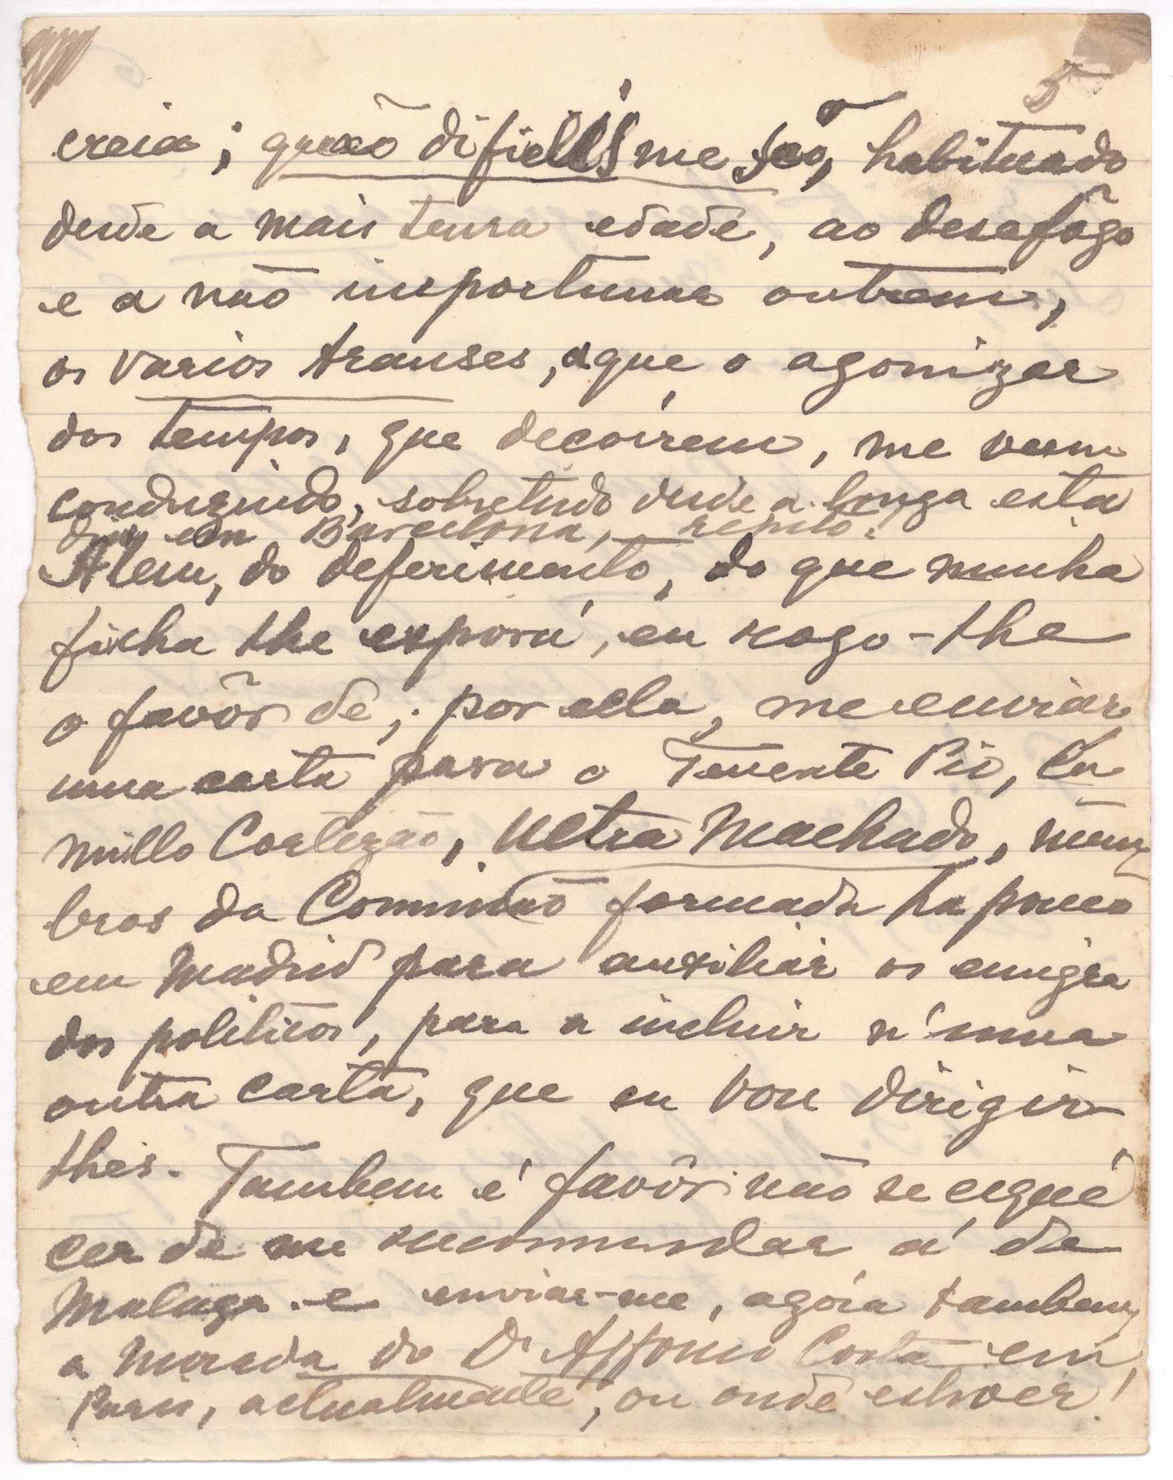 5
creia; quão dificeis me são, habituado
desde a mais tenra edade, ao desafôgo
e a não importunar outrem,
os varios transes, a que o agonizar
dos tempos, que decórrem, me veem
conduzindo, sobretudo desde a longa esta
dia em Barcelona, repito.
Alem, do deferimento, do que minha
ficha lhe exporá, eu rogo-lhe
o favôr de, por ella, me enviar
uma carta para o Tenente Pio, Ca
millo Cortezão, Utra Machado, mem
bros da Commissão formada ha pouco
em Madrid para auxiliar os emigra
dos politicos, para a incluir n'uma
outra carta, que eu vou dirigir-
lhes. Tambem é favôr não se esqué
cer de me recommendar á de
Malaga e enviar-me, agóra tambem,
a morada do Dr Affonso Costa em
Paris, actualmente, ou onde estiver!